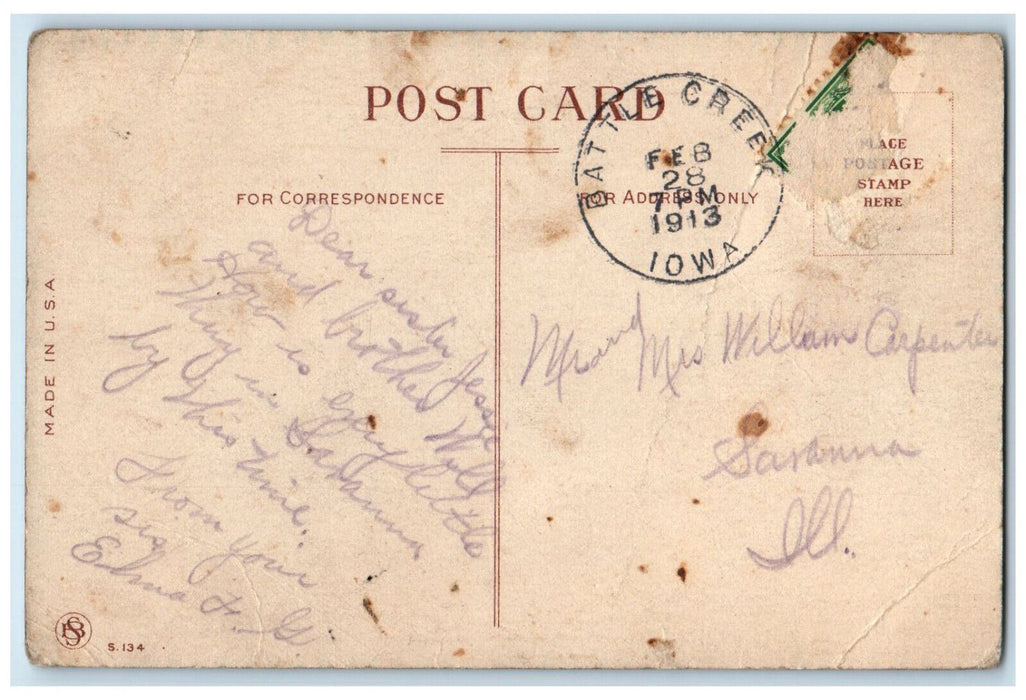 POST CARD
BATTLE CREEK
FEB
28
7 PM
1913
IOWA
PLACE
POSTAGE
STAMP
HERE
FOR CORRESPONDENCE
FOR ADDRESS ONLY
Dear sister Jessie
and brother Will
How is everything
in Savanna
by this time.
From your
sis
Edna F. G.
Mr and Mrs William Carpenter
Savanna
Ill.
MADE IN U.S.A
S. 134